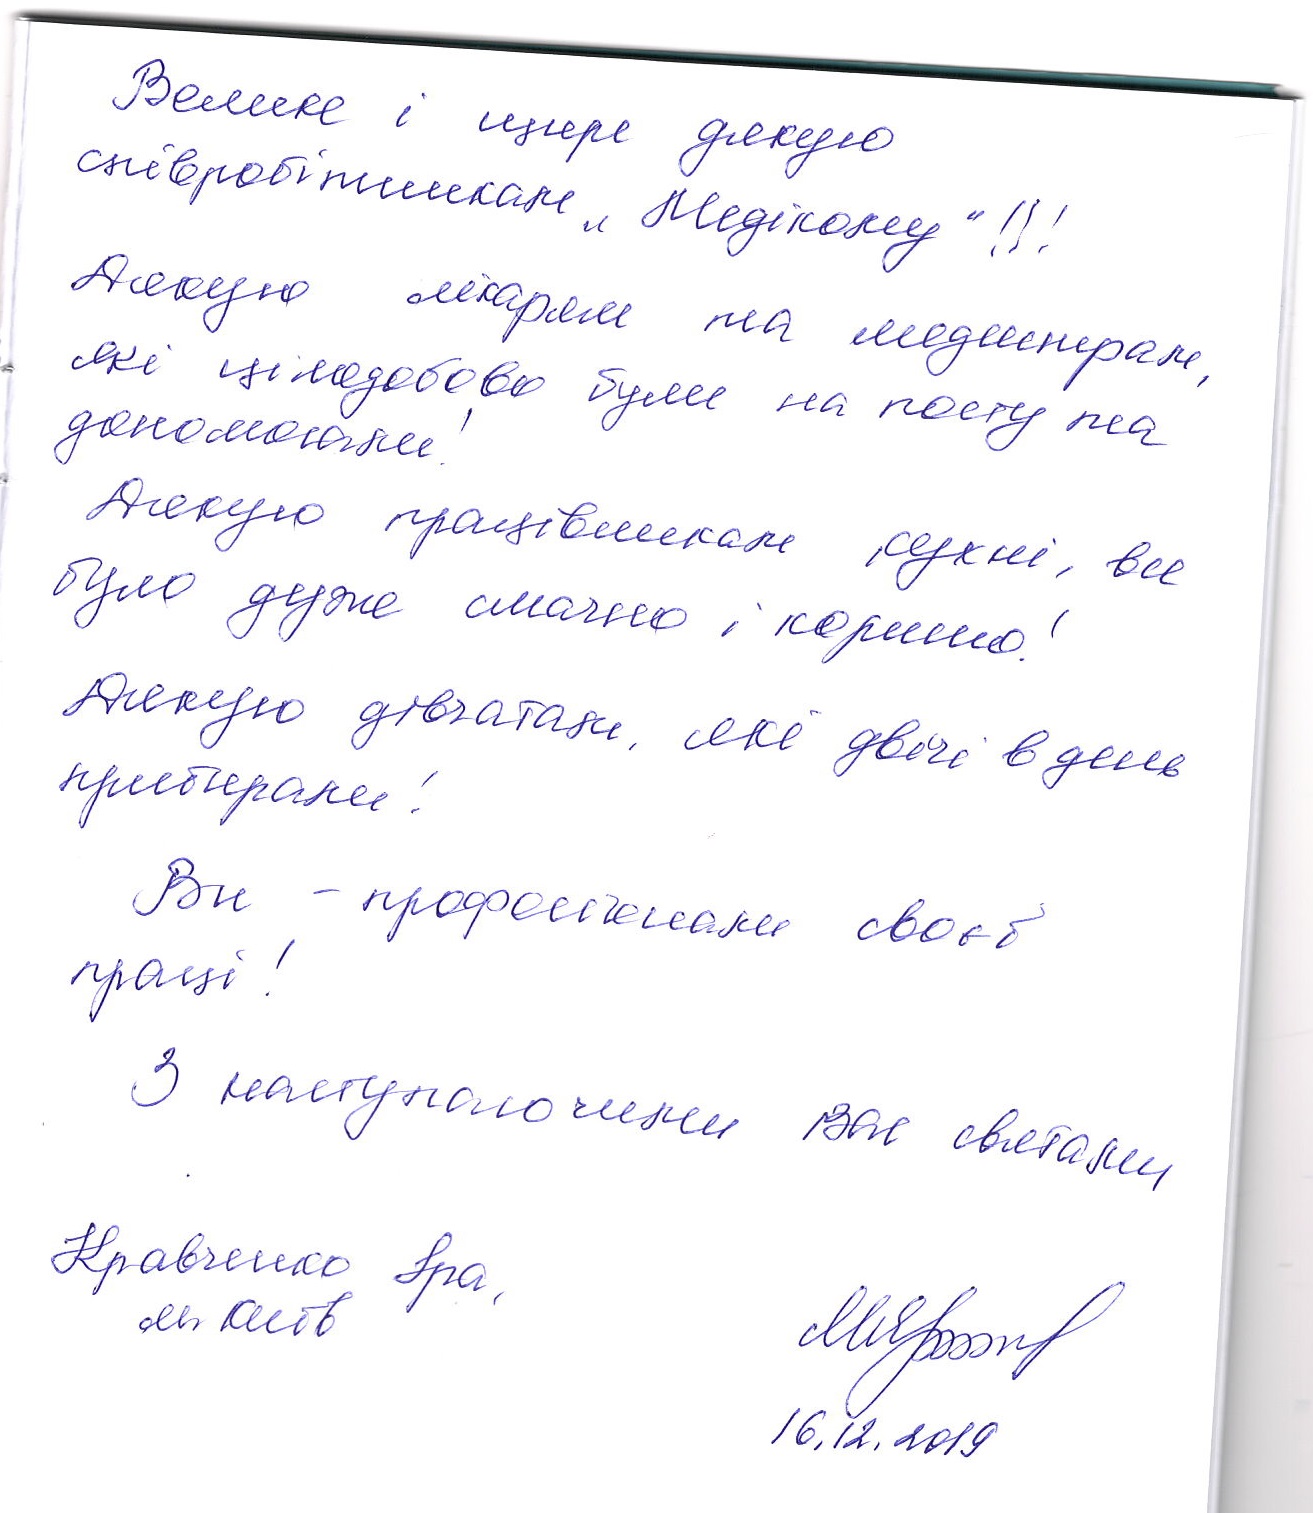 Велике і щире дякую
співробітникам „Медікому“!!!
Дякую лікарям та медсестрам,
які цілодобово були на посту та
допомогали!
Дякую працівникам кухні, все
було дуже смачно і корисно!
Дякую дівчатам, які двічі в день
прибирали!
Ви – професіонали своєї
праці!
З наступаючими Вас святами
Кравченко Іра,
м. Київ
16.12.2019